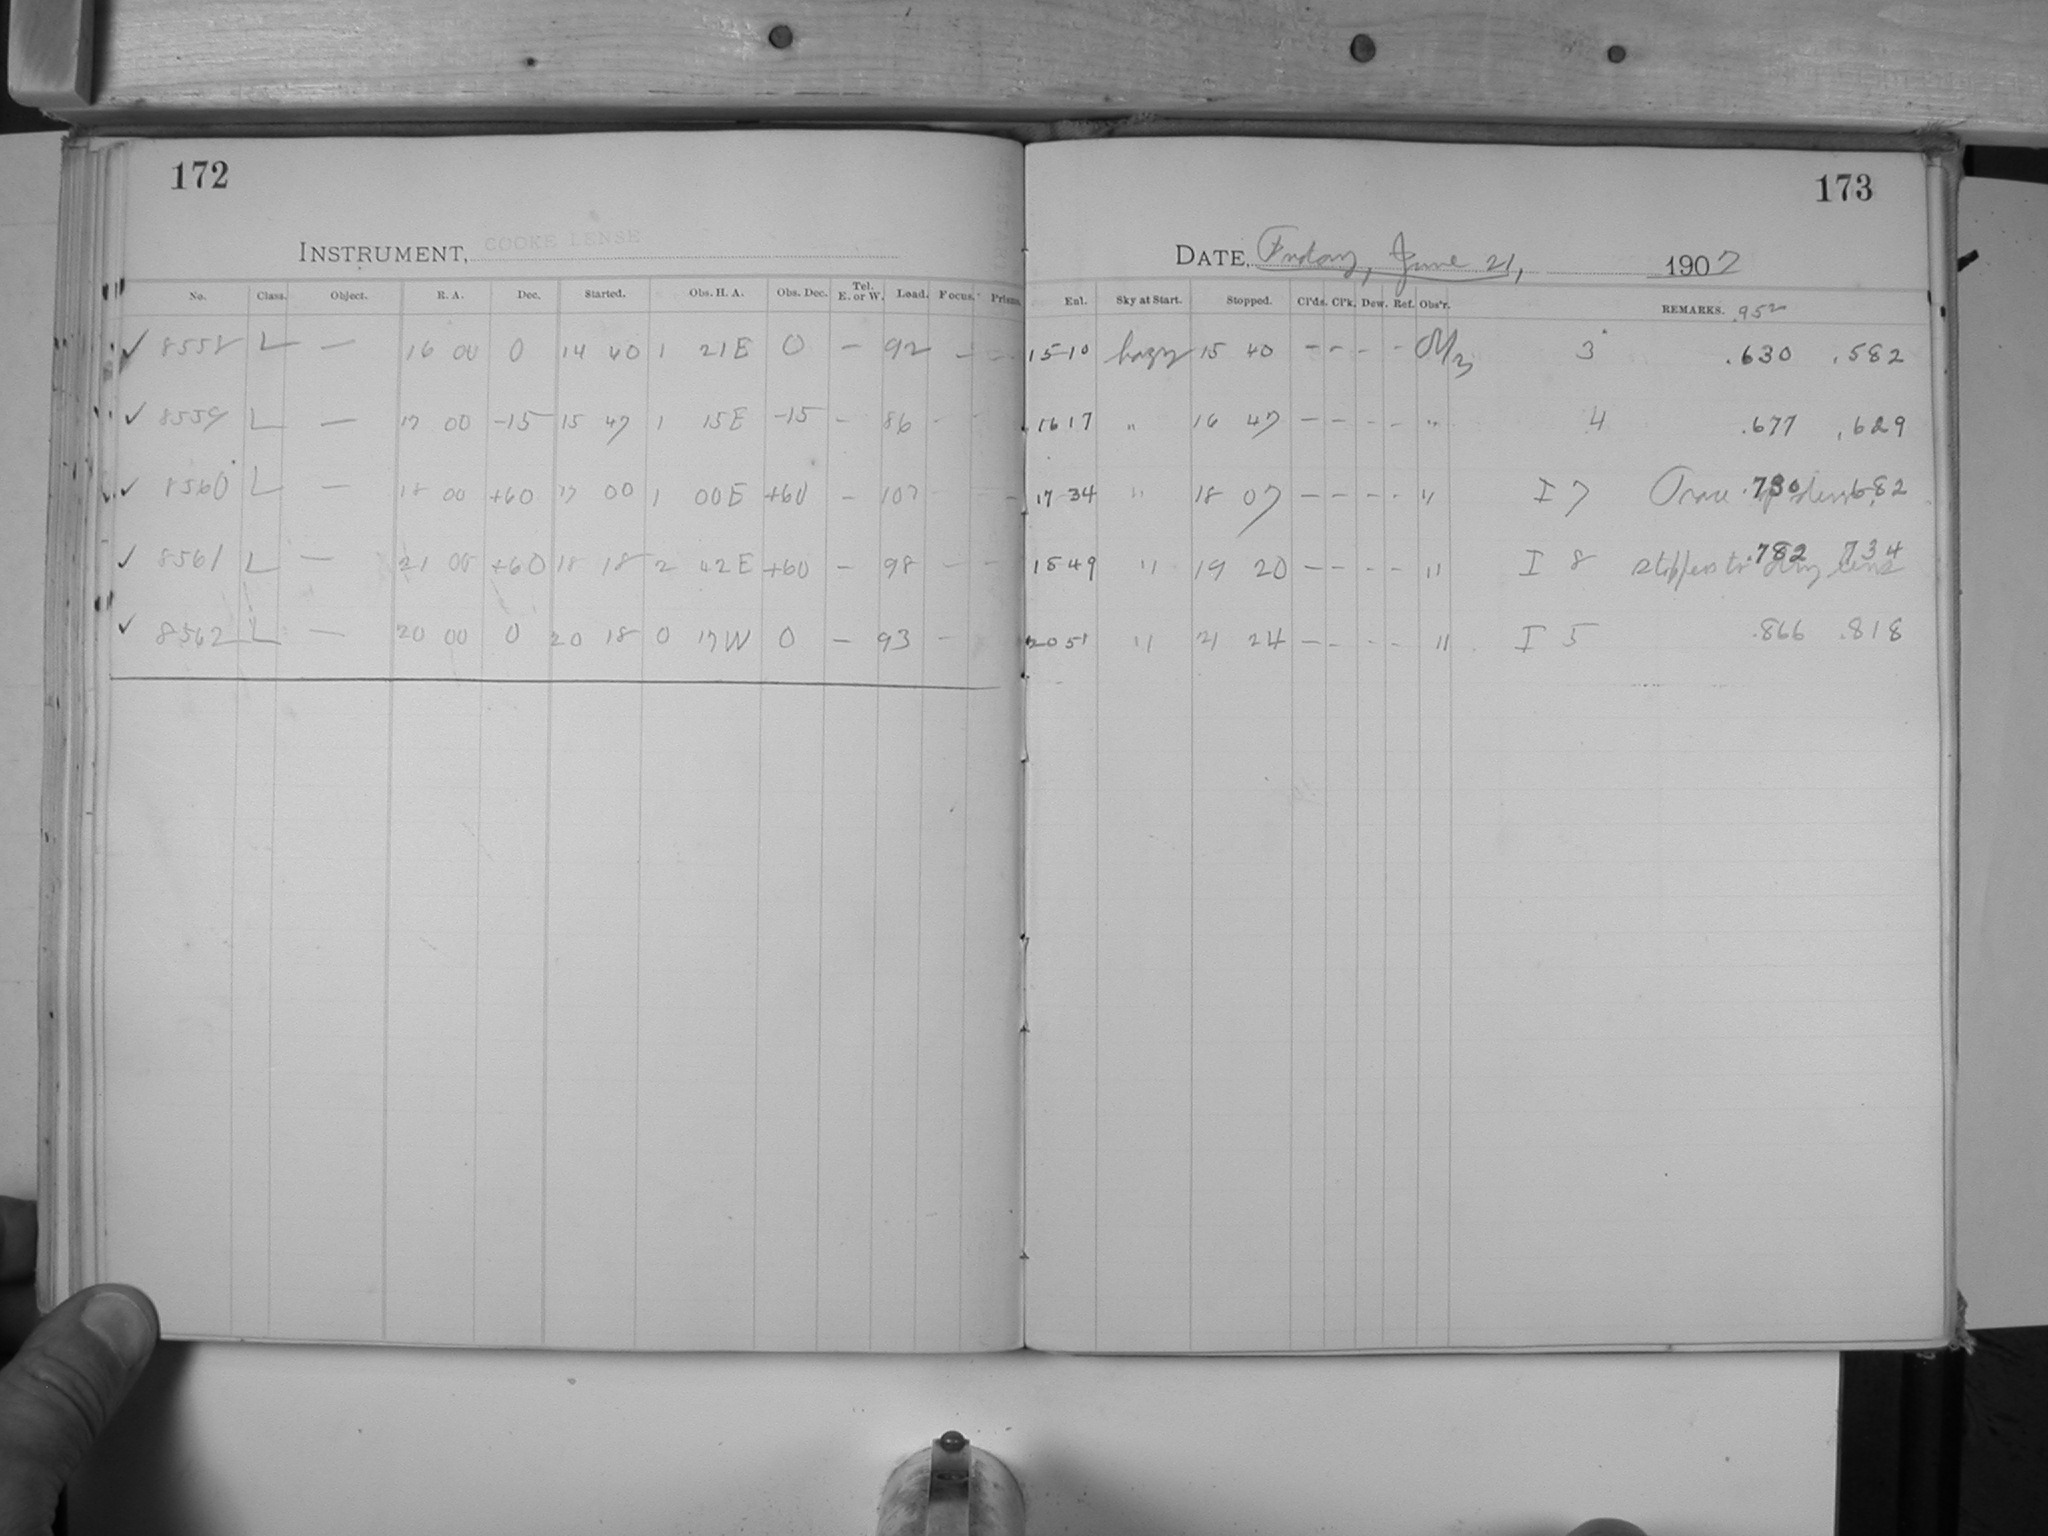 172
INSTRUMENT, COOKE LENSE
No. Class. Object. R. A. Dec. Started. Obs. H. A. Obs. Dec. Tel. E. or W. Load. Focus. Prisms.
✓ 8558 L — 16 00 0 14 40 1 21E 0 — 92 — —
✓ 8559 L — 17 00 -15 15 47 1 15E -15 — 86 - -
✓ 8560 L — 18 00 +60 17 00 1 00E +60 — 107 - - -
✓ 8561 L — 21 00 +60 18 18 2 42E +60 — 98 — —
✓ 8562 L — 20 00 0 20 18 0 17W 0 — 93 - -
173
DATE, Friday, June 21, 1907
Enl. Sky at Start. Stopped. Cl'ds. Cl'k. Dew. Ref. Obs'r. REMARKS. .952
15-10 hazy 15 40 - - - - 3 .630 .582
16 17 " 16 47 - - - - " 4 .677 .629
17-34 " 18 07 - - - - " I 7 Trace of dew .730 .682
18 49 " 19 20 - - - - " I 8 stopped to dry lens .782 .734
20 51 " 21 24 - - - - " I 5 .866 .818